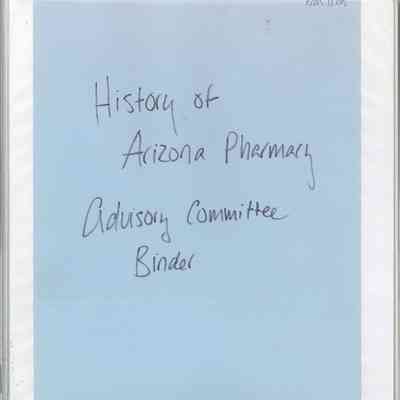 History of
Arizona Pharmacy
Advisory Committee
Binder